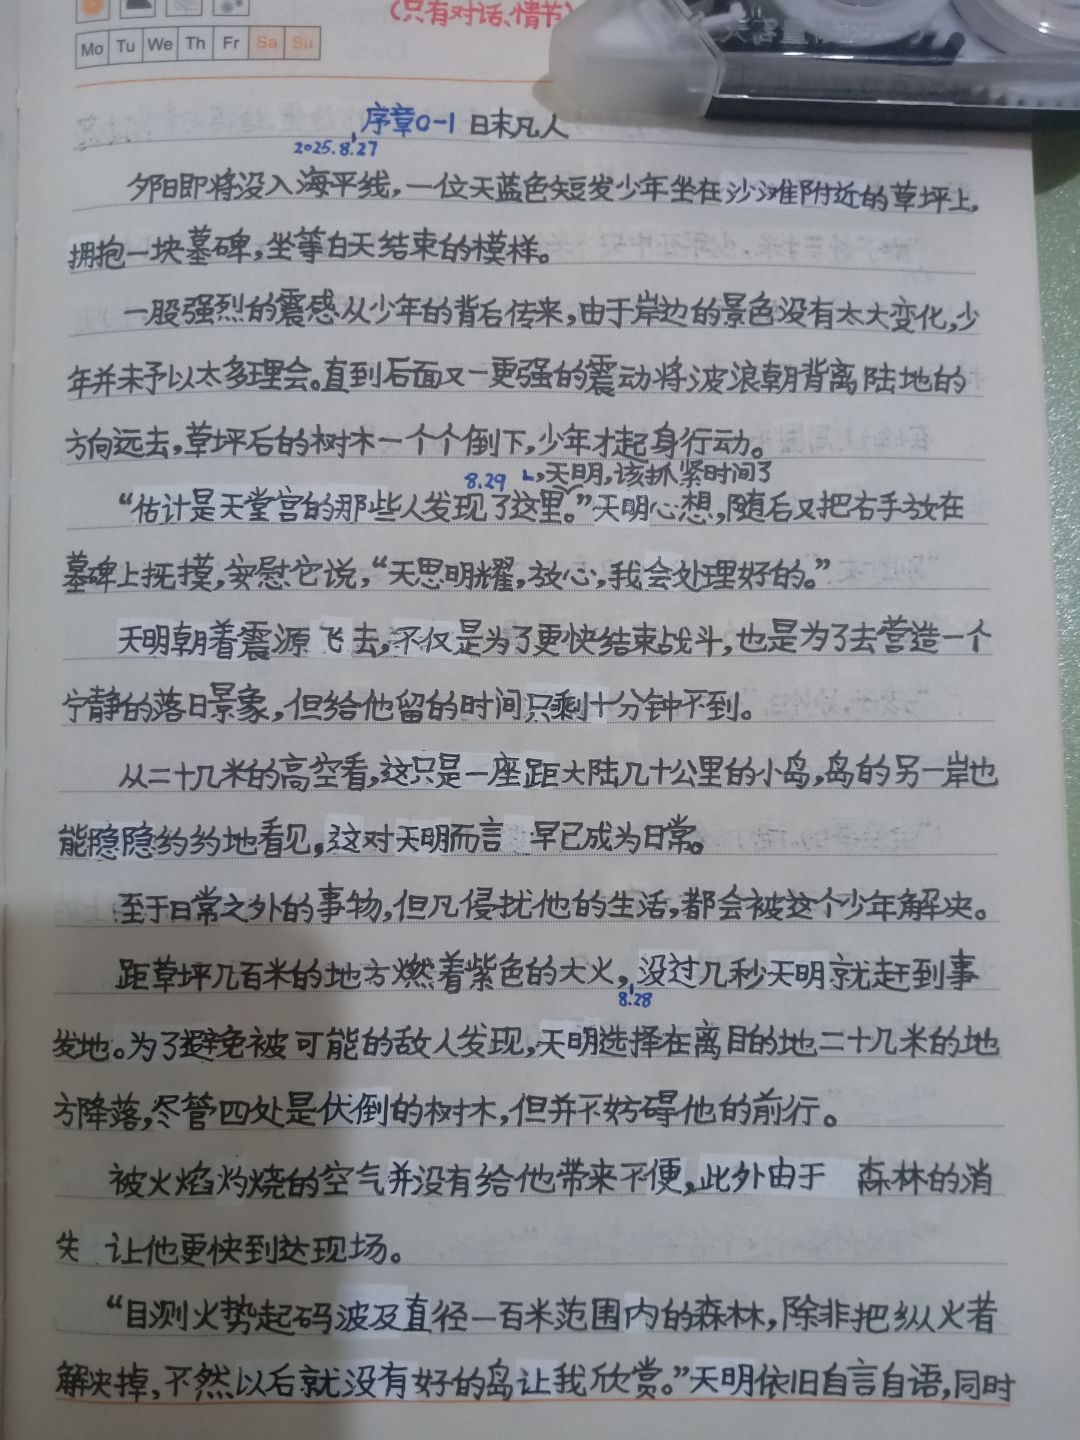 (只有对话、情节)
Mo Tu We Th Fr Sa Su
序章0-1 日末凡人
2025.8.27
夕阳即将没入海平线，一位天蓝色短发少年坐在沙滩附近的草坪上，
拥抱一块墓碑，坐等白天结束的模样。
一股强烈的震感从少年的背后传来，由于岸边的景色没有太大变化，少
年并未予以太多理会。直到后面又一更强的震动将波浪朝背离陆地的
方向远去，草坪后的树木一个个倒下，少年才起身行动。
8.29 ，天明，该抓紧时间了
“估计是天堂宫的那些人发现了这里。”天明心想，随后又把右手放在
墓碑上抚摸，安慰它说，“天思明耀，放心，我会处理好的。”
天明朝着震源飞去，不仅是为了更快结束战斗，也是为了去营造一个
宁静的落日景象，但给他留的时间只剩十分钟不到。
从二十几米的高空看，这只是一座距大陆几十公里的小岛，岛的另一岸也
能隐隐约约地看见，这对天明而言 早已成为日常。
至于日常之外的事物，但凡侵扰他的生活，都会被这个少年解决。
距草坪几百米的地方燃着紫色的大火，没过几秒天明就赶到事
8.28
发地。为了避免被可能的敌人发现，天明选择在离目的地二十几米的地
方降落，尽管四处是伏倒的树木，但并不妨碍他的前行。
被火焰灼烧的空气并没有给他带来不便，此外由于 森林的消
失 让他更快到达现场。
“目测火势起码波及直径一百米范围内的森林，除非把纵火者
解决掉，不然以后就没有好的岛让我欣赏。”天明依旧自言自语，同时